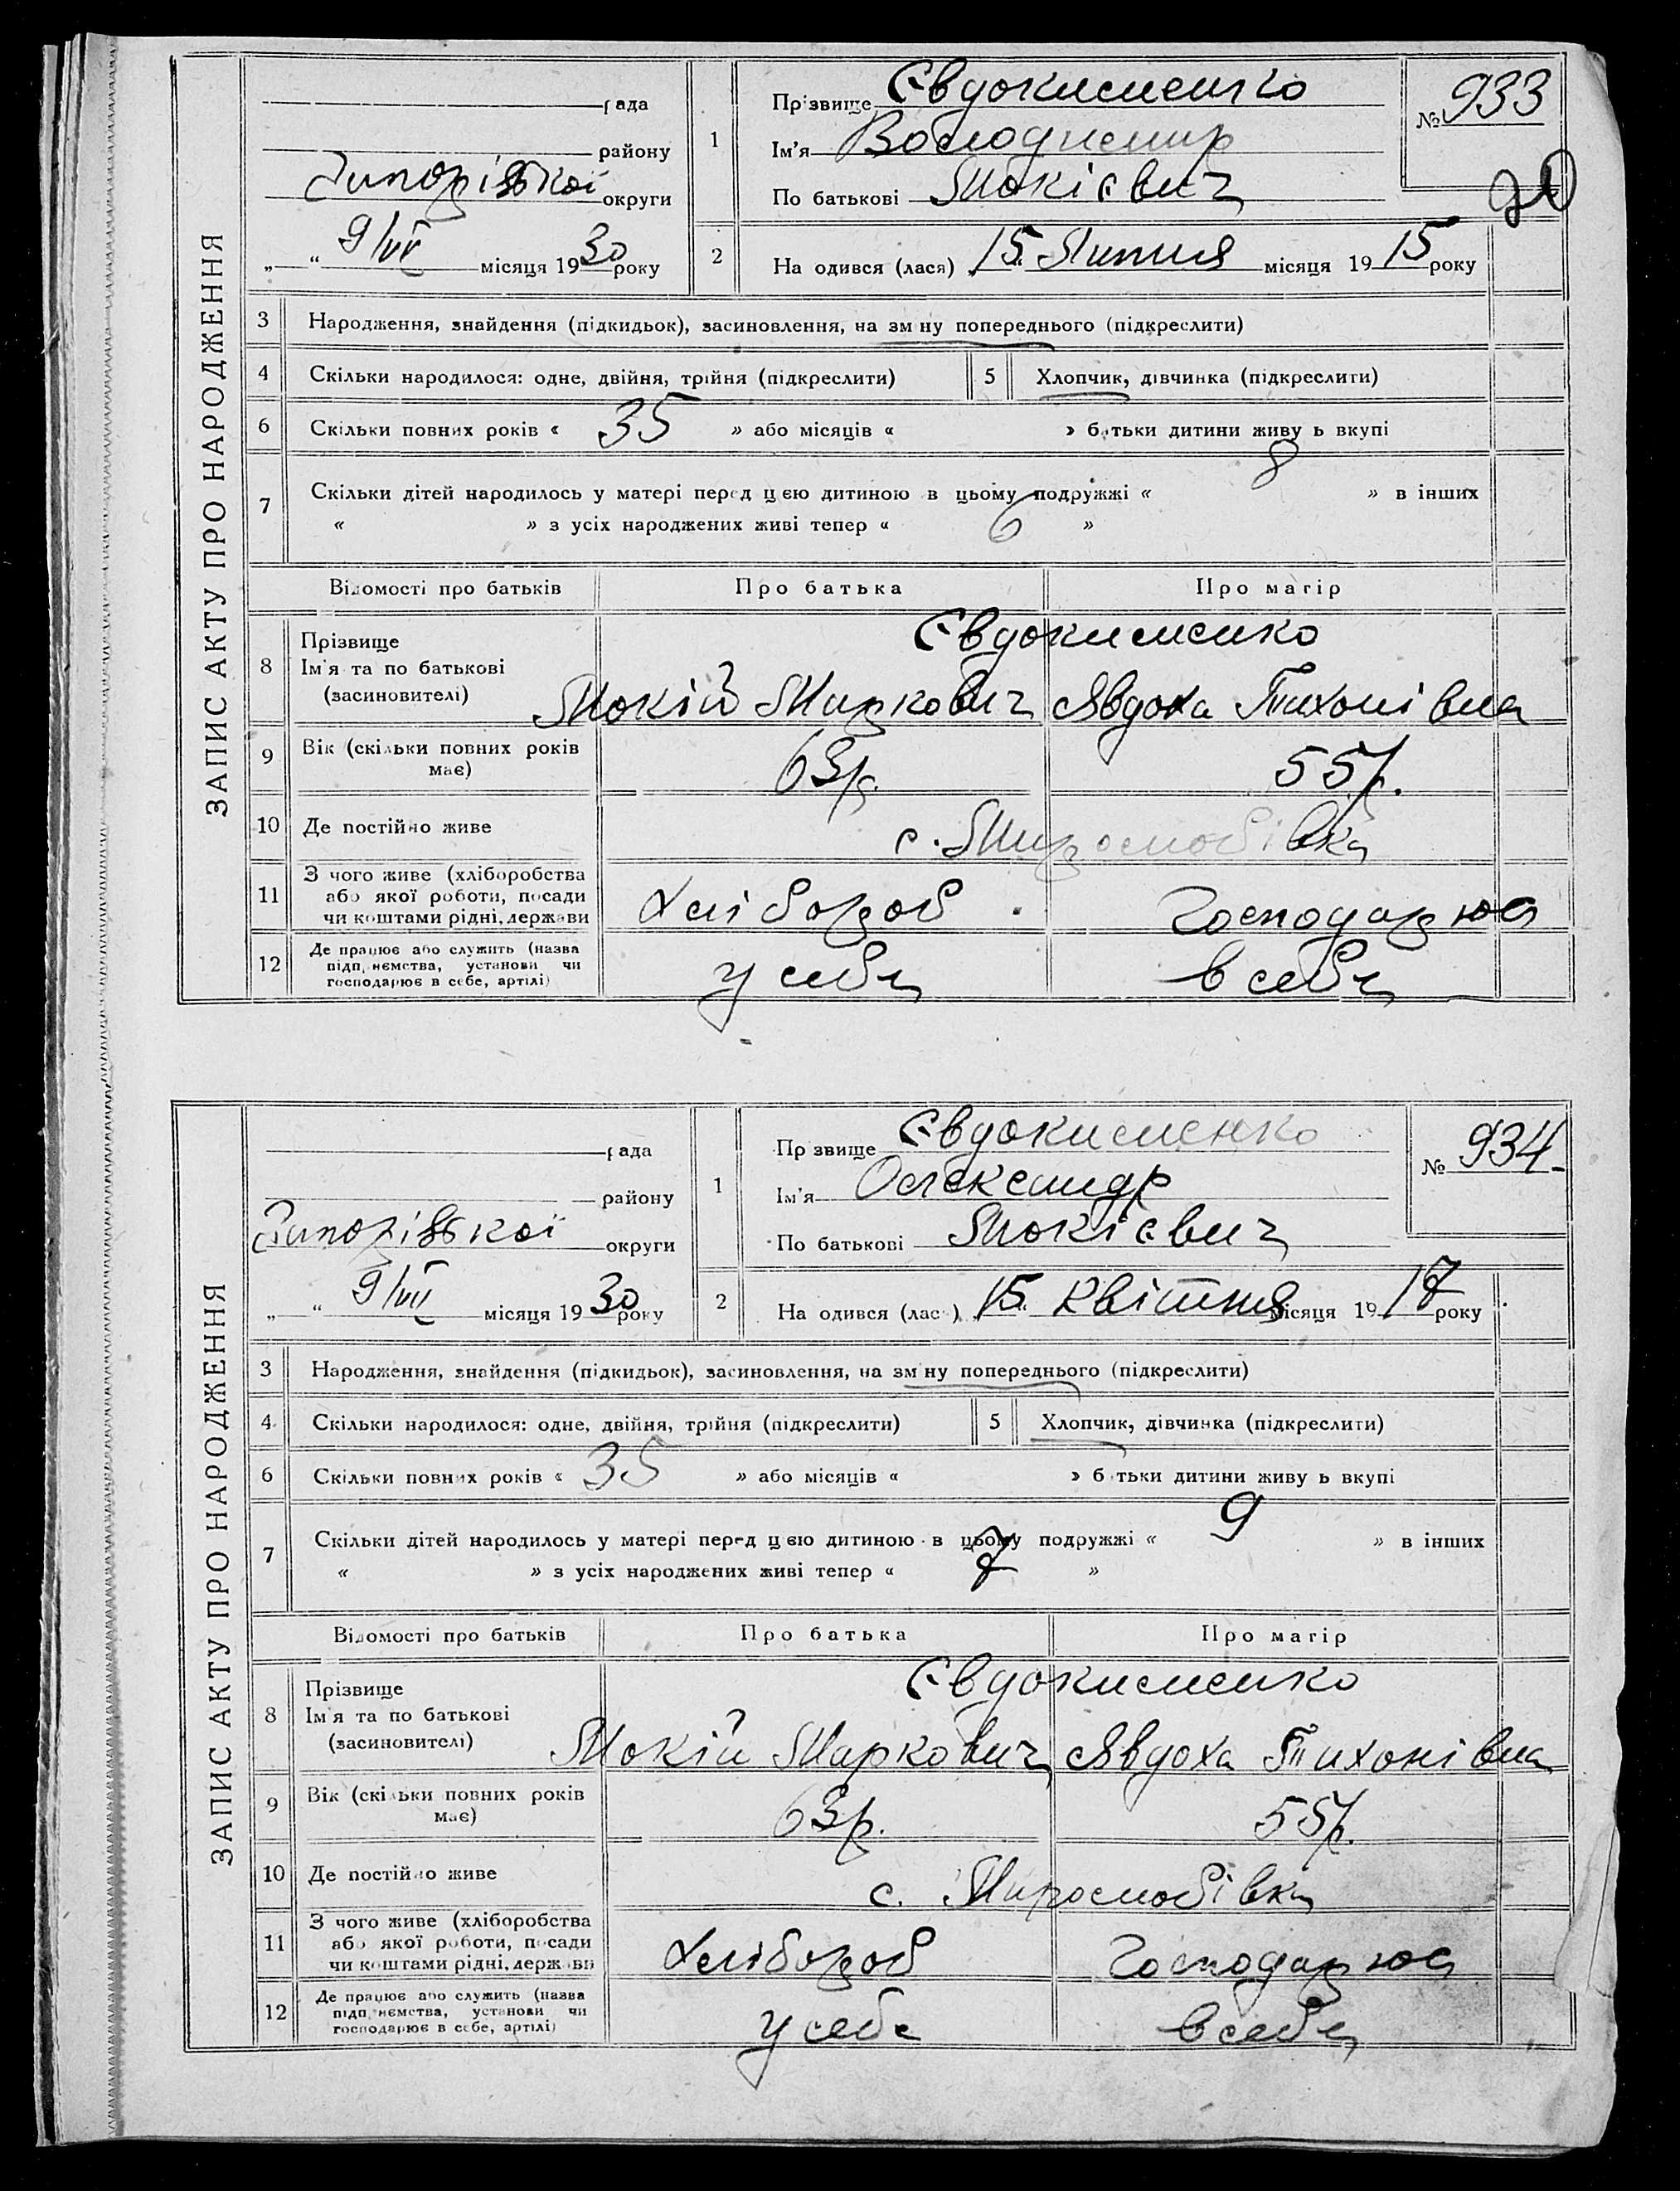 ЗАПИС АКТУ ПРО НАРОДЖЕННЯ
рада
району
Запорізької округи
„ “ 9/VII місяця 1930 року
1
Прізвище Євдокименко
Ім'я Володимир
По батькові Мокієвич
№ 933
20
2
На одився (лася) „15“ Липня місяця 1915 року
3 Народження, знайдення (підкидьок), засиновлення, на зм ну попереднього (підкреслити)
4 Скільки народилося: одне, двійня, трійня (підкреслити) 5 Хлопчик, дівчинка (підкреслити)
6 Скільки повних років « 35 » або місяців « » батьки дитини живу ь вкупі
7 Скільки дітей народилось у матері перед цією дитиною в цьому подружжі « 8 » в інших
« » з усіх народжених живі тепер « 6 »
Відомості про батьків Про батька Про матір
8 Прізвище
Ім'я та по батькові
(засиновителі)
Євдокименко
Мокій Маркович Явдоха Тихонівна
9 Вік (скільки повних років має) 63 р. 55 р.
10 Де постійно живе с. Миролюбівка
11 З чого живе (хліборобства
або якої роботи, посади
чи коштами рідні, держави
Хлібороб Господарює
12 Де працює або служить (назва
підп иємства, установи чи
господарює в себе, артілі)
у себе в себе
ЗАПИС АКТУ ПРО НАРОДЖЕННЯ
рада
району
Запорізької округи
„ “ 9/VII місяця 1930 року
1
Пр звище Євдокименко
Ім'я Олександр
По батькові Мокієвич
№ 934
2
На одився (лас ) „15“ Квітня місяця 1917 року
3 Народження, знайдення (підкидьок), засиновлення, на зм ну попереднього (підкреслити)
4 Скільки народилося: одне, двійня, трійня (підкреслити) 5 Хлопчик, дівчинка (підкреслити)
6 Скільки повних років « 35 » або місяців « » б тьки дитини живу ь вкупі
7 Скільки дітей народилось у матері перед цією дитиною в цьому подружжі « 9 » в інших
« » з усіх народжених живі тепер « 7 »
Відомості про батьків Про батька Про матір
8 Прізвище
Ім'я та по батькові
(засиновителі)
Євдокименко
Мокій Маркович Явдоха Тихонівна
9 Вік (скільки повних років має) 63 р. 55 р.
10 Де постійно живе с. Миролюбівка
11 З чого живе (хліборобства
або якої роботи, посади
чи коштами рідні, держави
Хлібороб Господарює
12 Де працює або служить (назва
підп иємства, установи чи
господарює в себе, артілі)
у себе в себе